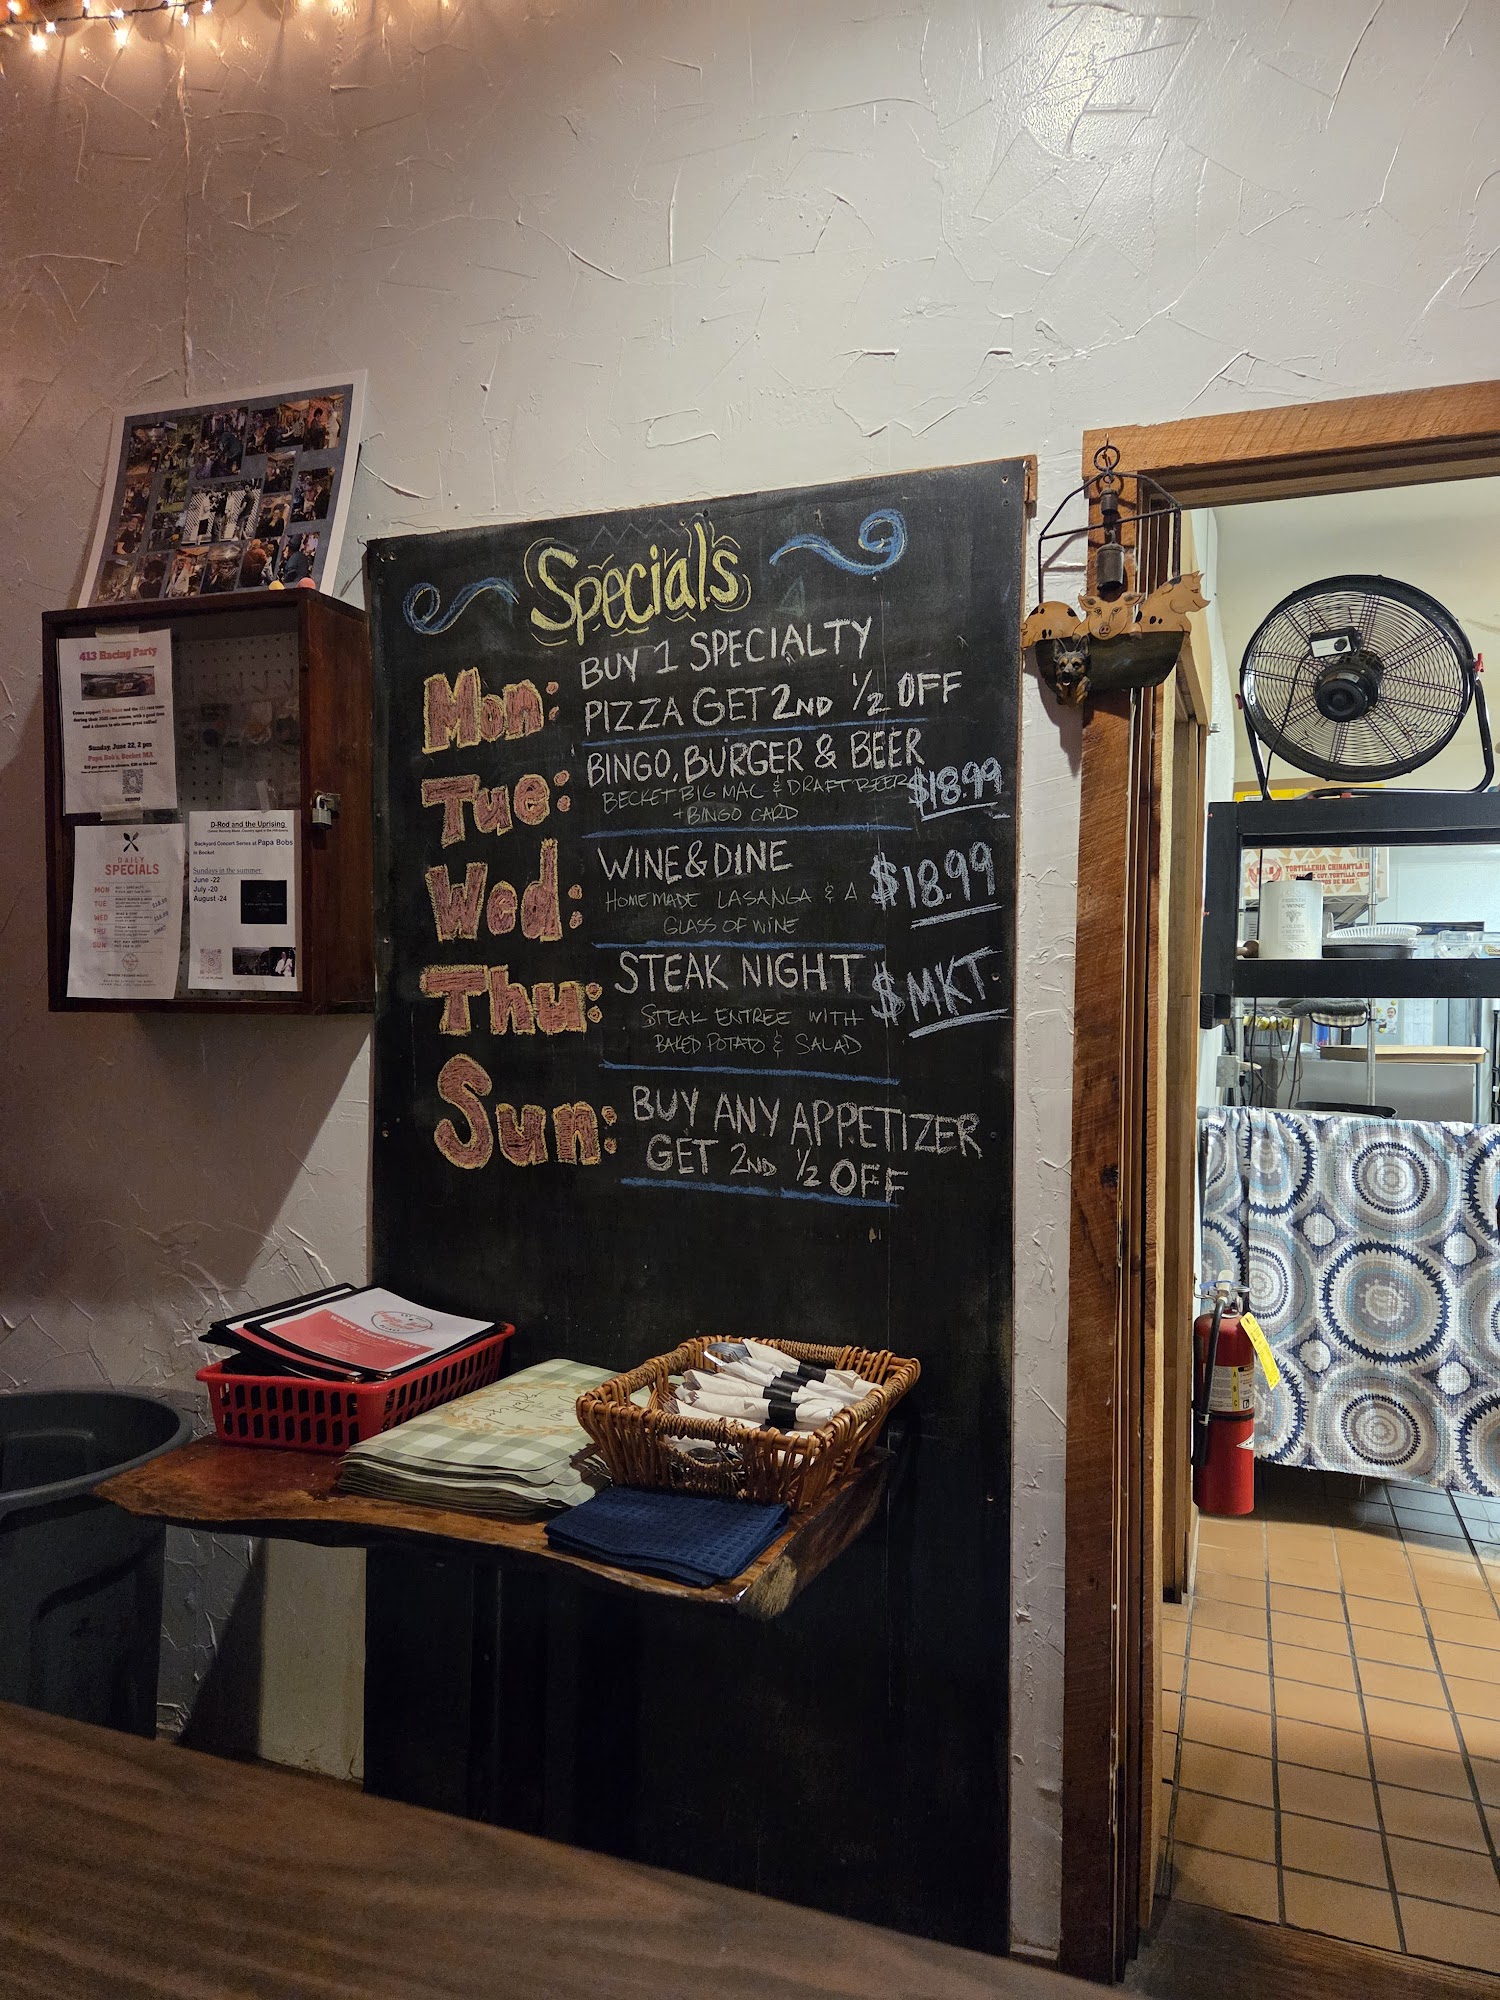 Specials
Mon:
BUY 1 SPECIALTY
PIZZA GET 2ND 1/2 OFF
Tue:
BINGO, BURGER & BEER
BECKET BIG MAC & DRAFT BEER
+ BINGO CARD
$18.99
Wed:
WINE & DINE
HOMEMADE LASANGA & A
GLASS OF WINE
$18.99
Thu:
STEAK NIGHT
STEAK ENTREE WITH
BAKED POTATO & SALAD
$MKT
Sun:
BUY ANY APPETIZER
GET 2ND 1/2 OFF
413 Racing Party
Sunday, June 22, 2 pm
Papa Bob's, Becket MA
DAILY
SPECIALS
MON
TUE
WED
THU
SUN
D-Rod and the Uprising
Backyard Concert Series at Papa Bobs
in Becket
Sundays in the summer
June -22
July -20
August -24
TORTILLERIA CHINANTLA
WINE